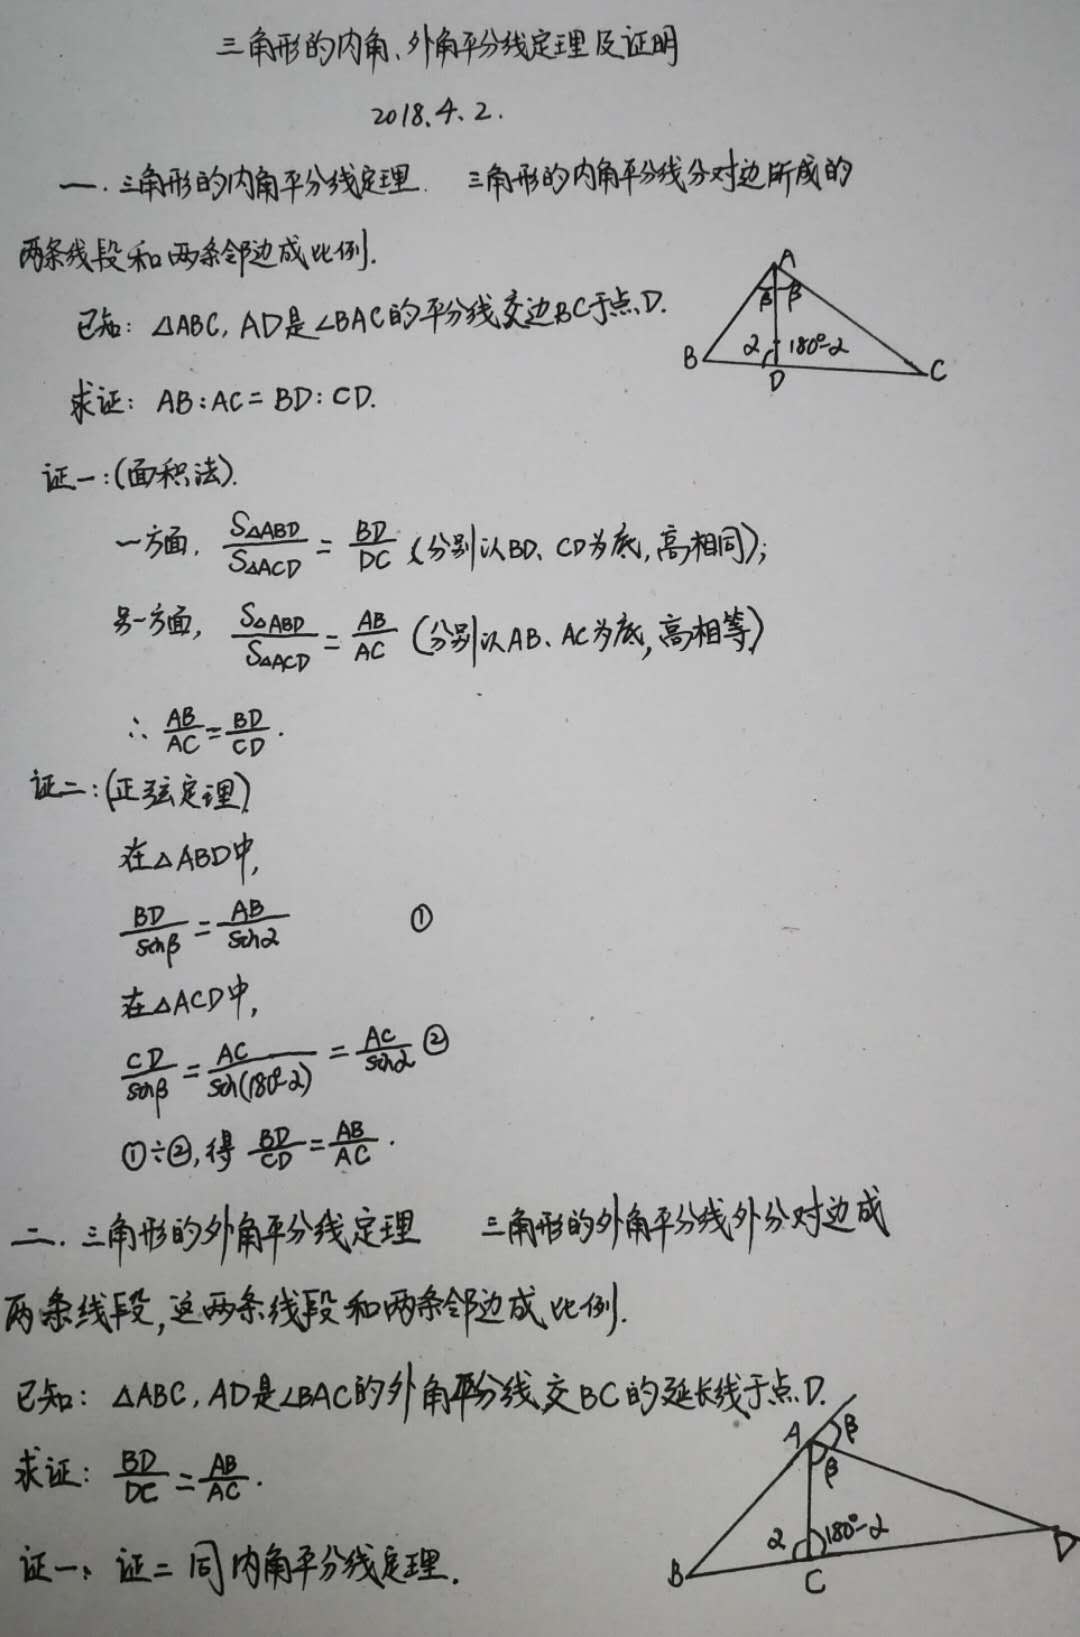 三角形的内角、外角平分线定理及证明
2018.4.2.
一.三角形的内角平分线定理. 三角形的内角平分线分对边所成的
两条线段和两条邻边成比例.
已知: △ABC, AD是∠BAC的平分线交边BC于点D.
求证: AB:AC=BD:CD.
A
β β
B α 180°-α C
D
证一:(面积法).
一方面, S△ABD/S△ACD = BD/DC (分别以BD、CD为底,高相同);
另一方面, S△ABD/S△ACD = AB/AC (分别以AB、AC为底,高相等)
∴ AB/AC = BD/CD.
证二:(正弦定理)
在△ABD中,
BD/sinβ = AB/sinα ①
在△ACD中,
CD/sinβ = AC/sin(180°-α) = AC/sinα ②
①÷②,得 BD/CD = AB/AC.
二.三角形的外角平分线定理 三角形的外角平分线外分对边成
两条线段,这两条线段和两条邻边成比例.
已知: △ABC, AD是∠BAC的外角平分线交BC的延长线于点D.
求证: BD/DC = AB/AC.
A β
β
α 180°-α D
B C
证一、证二同内角平分线定理.